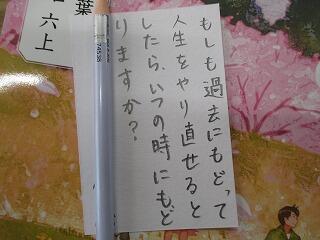 もしも過去にもどって
人生をやり直せると
したら、いつの時にもど
りますか?
葉
六上